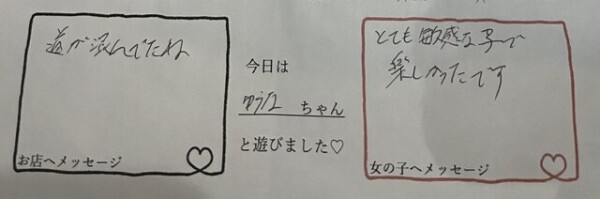 道が混んでたね
お店へメッセージ
今日は
ゆうな ちゃん
と遊びました♡
とても敏感な子で
楽しかったです
女の子へメッセージ